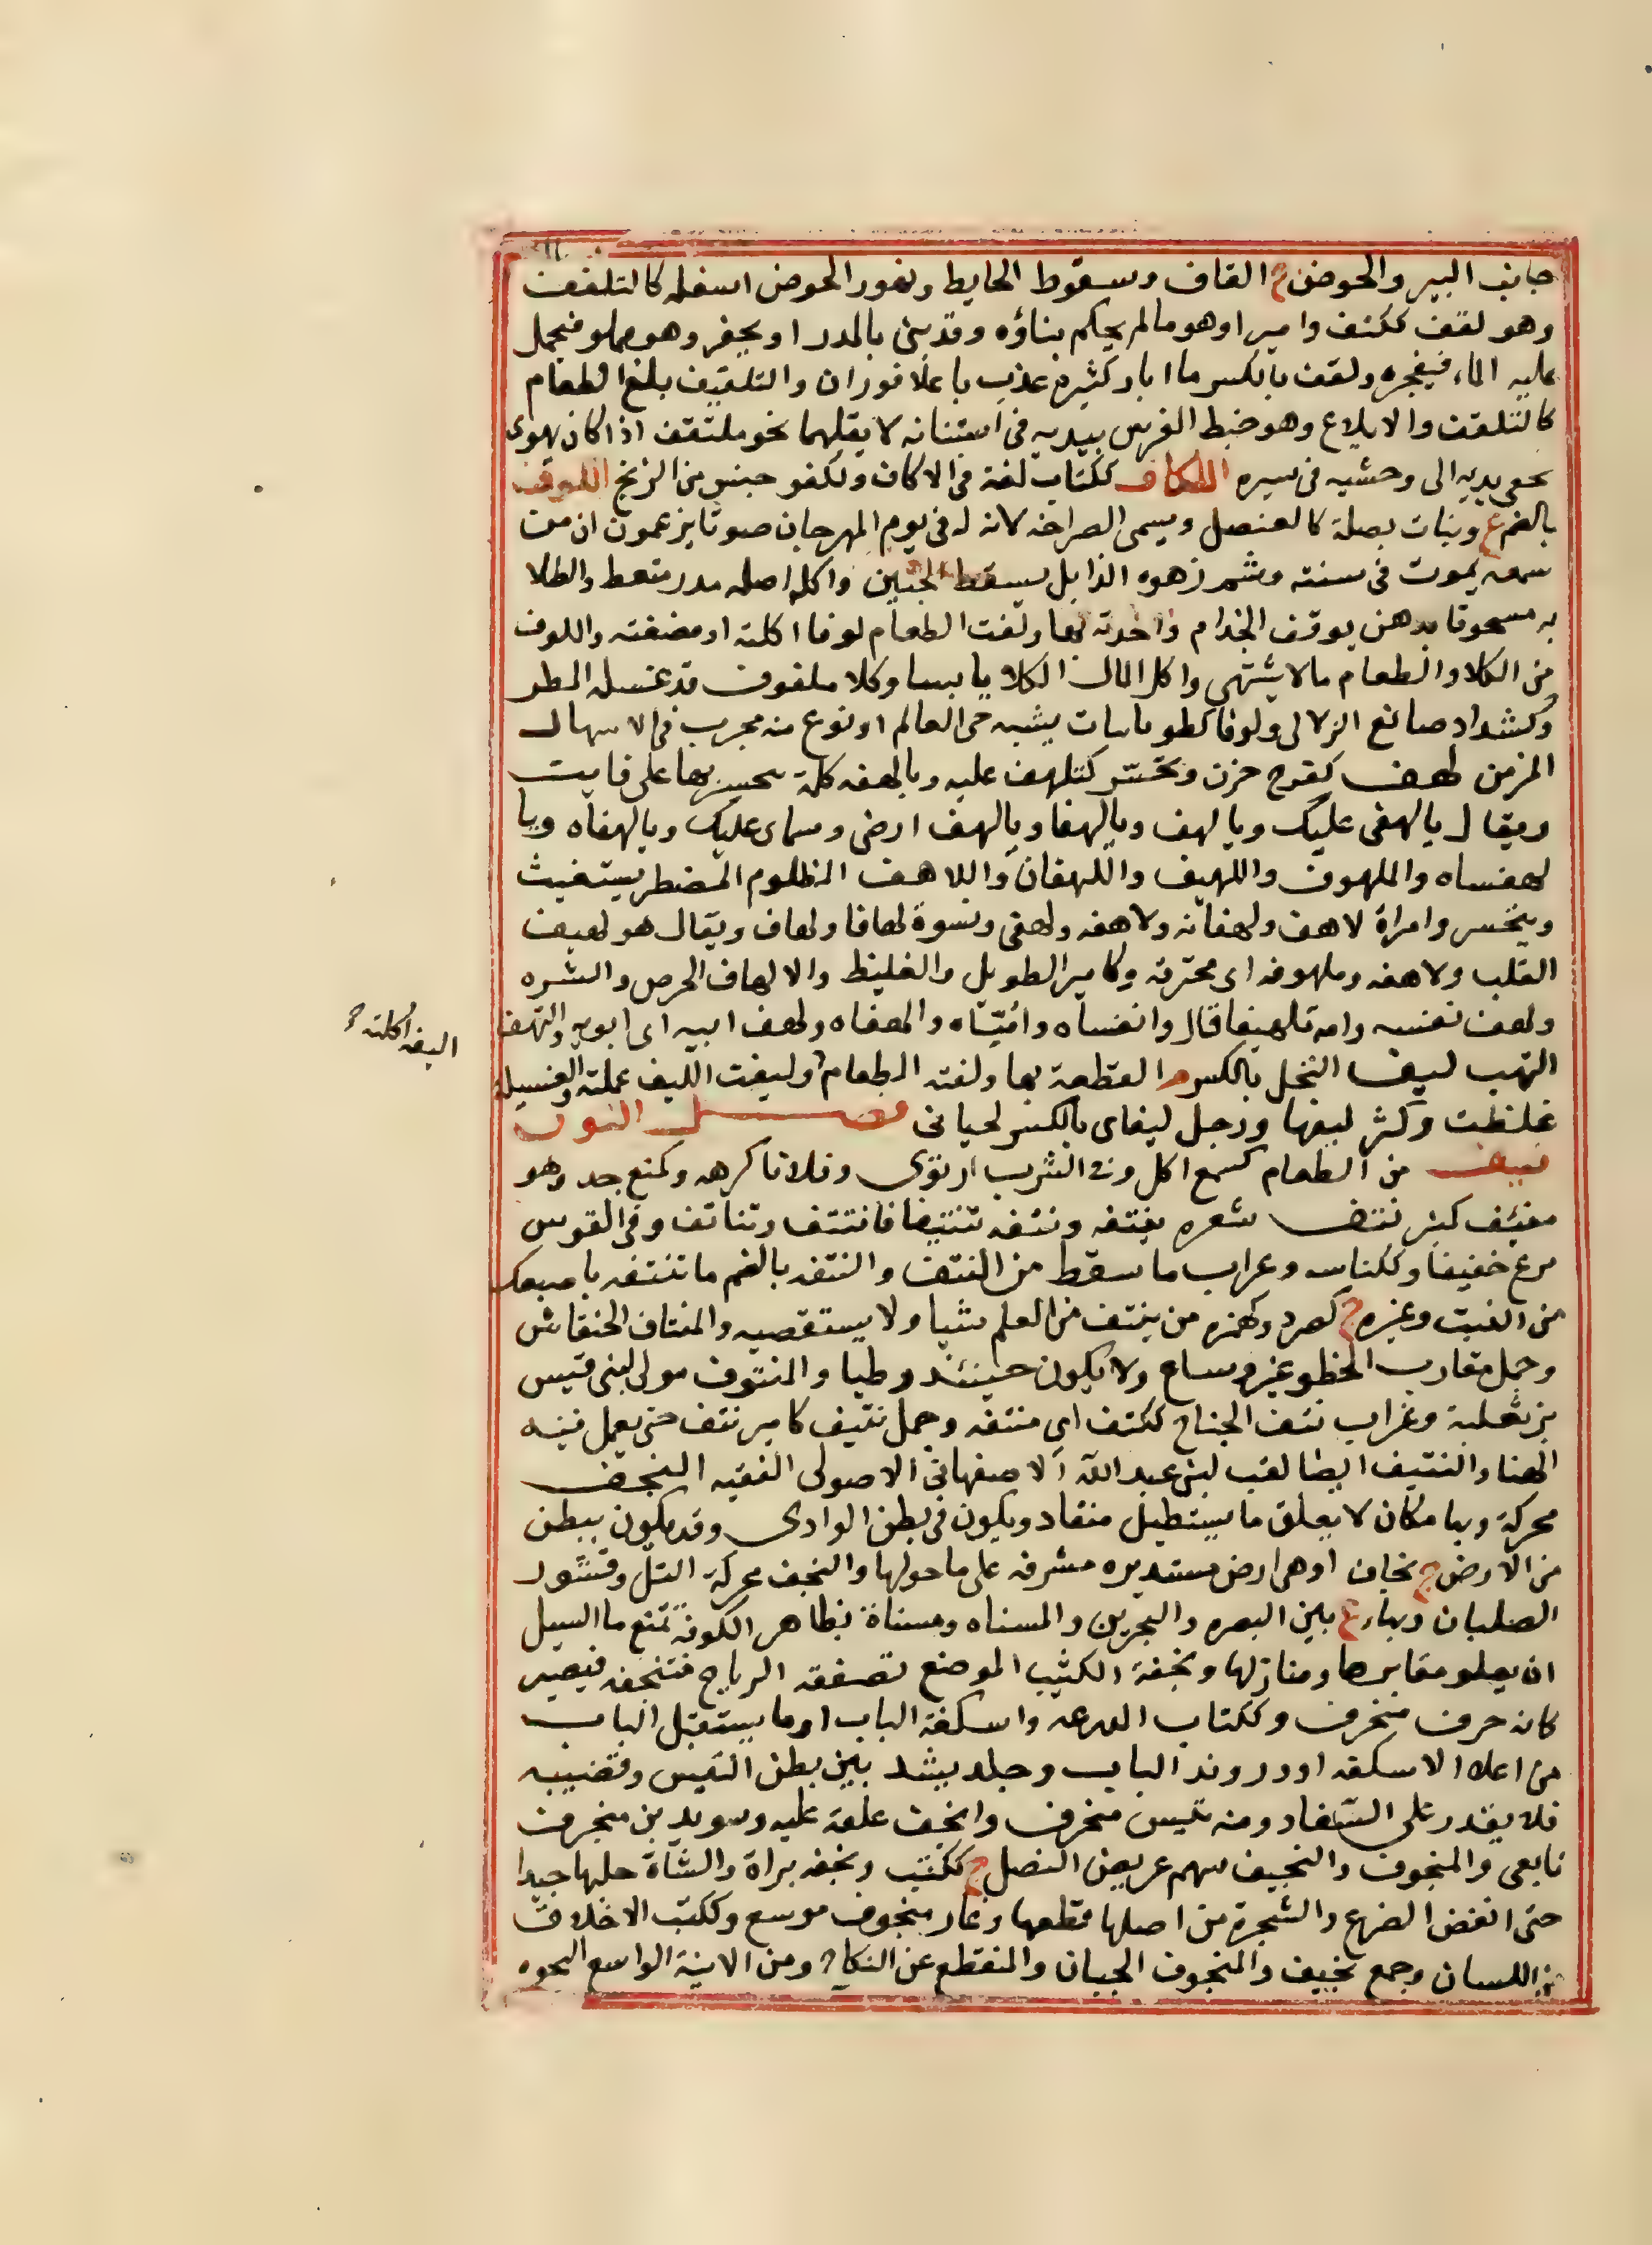 جانب البير والحوض ج القاف وسقوط الحايط وتهور الحوض اسفله كالتلقف
وهو لقف ككتف وامير او هو مالم يحكم بناؤه وقد بنى بالمدر او يحفر وهو مملو فيحمل
عليه الماء فيفجره ولقف بالكسر ما ابار كثيرة عذب باعلا قوران والتلقيف بلغ الطعام
كالتلقف والابلاع وهو خبط الفرس بيديه فى استنانه لا يقلهما نحو ملتقف اذا كان يهوى
بخفى يديه الى وحشيه فى سيره اللكاف ككتاب لغة فى الاكاف ولكفو جنس من الزنج اللوف
بالضم ع ونبات بصلة كالعنصل ويسمى الصراخة لانه له فى يوم المهرجان صوتا يزعمون ان من
سمعه يموت فى سنته وشم زهوه الذابل يسقط الجنين واكل اصله مدر منعظ والطلا
به مسحوقا بدهن يوقف الجذام واحدته بها ولفت الطعام لوفا اكلته او مضغته واللوف
من الكلا والطعام مالا يشتهى واكل المال الكلا يابسا وكلا ملفوف قد غسله المطر
وكشداد صانع الزلالى ولوفا كطوبا نبات يشبه حى العالم او نوع منه مجرب فى الاسهال
المزمن لهف كفرح حزن وتحسر كتلهف عليه ويالهفه كلمة يتحسر بها على فايت
ويقال يالهفى عليك ويا لهف ويالهفا ويالهف ارضى وسماى عليك ويالهفاه ويا
لهفتياه والملهوف واللهيف واللهفان واللاهف المظلوم المضطر يستغيث
ويتحسر وامراة لاهف ولهفانه ولاهفه ولهفى ونسوة لهافا ولهاف ويقال هو لهيف
القلب ولاهفه وملهوفه اى محترقه وكامير الطويل والغليظ والالهاف الحرص والشره
ولهف نفسه وامه تلهيفا قال وانفساه وامّيّاه والهفاه ولهف ابيه اى ابويه والتهف
التهب ليف النخل بالكسر م القطعة بها ولفته الطعام وليفت الليف عملته والفسيلة
غلظت وكثر ليفها ورجل ليفاى بالكسر لحيانى فصل النون
نيف من الطعام كسمع اكل وفى الشرب ارتوى وفلانا كرهه وكمنع جد وهو
منئف كمنبر نتف شعره ينتفه ونتفه تنتيفا فانتتف وتناتف وفى القوس
نزع خفيفا وككناسه وغراب ما سقط من النتف والنتفه بالضم ما تنتفه باصبعك
من النبت وغيره ج كصرد وكهمزه من ينتف من العلم شيا ولا يستقصيه والمنتاف المنقاش
وجمل مقارب الخطو غير وساع ولا يكون حينئذ وطيا والمنتوف مولى لبنى قيس
بن ثعلبة وغراب نتف الجناح ككتف اى منتفه وجمل نتيف كامير نتف حتى يعمل فيه
الهنا والنتيف ايضا لقب لبنى عبد الله الاصفهانى الاصولى الفقيه النجف
محركة وبها مكان لا يعلق ما يستطيل منقاد ويكون فى بطن الوادى وقد يكون ببطن
من الارض ج نجاف او هى ارض مستديره مشرفه على ماحولها والنجف محركة التل وقشور
الصلبان وبهاء ع بين البصره والبحرين والمسناه ومسناة بظاهر الكوفة تمنع ما السيل
ان يعلو مقابرها ومنازلها ونجفة الكثيب الموضع تصفقه الرياح فتنجفه فيصير
كانه حرف منجرف وككتاب المدرعه واسكفة الباب او ما يستقبل الباب
من اعلا الاسكفه او دروند الباب وجلد يشد بين بطن التيس وقضيبه
فلا يقدر على السفاد ومنه تيس منجوف وانجف علقه عليه وسويد بن منجوف
تابعى والمنجوف والنجيف سهم عريض النصل ج ككتب ونجفه براة والشاة حلبها جيدا
حتى انفض الضرع والشجرة من اصلها قطعها وغار منجوف موسع وككتب الاخلاق
من اللسان وجمع نجيف والمنجوف الجبان والمنقطع عن النكاح ومن الانية الواسع الجوف